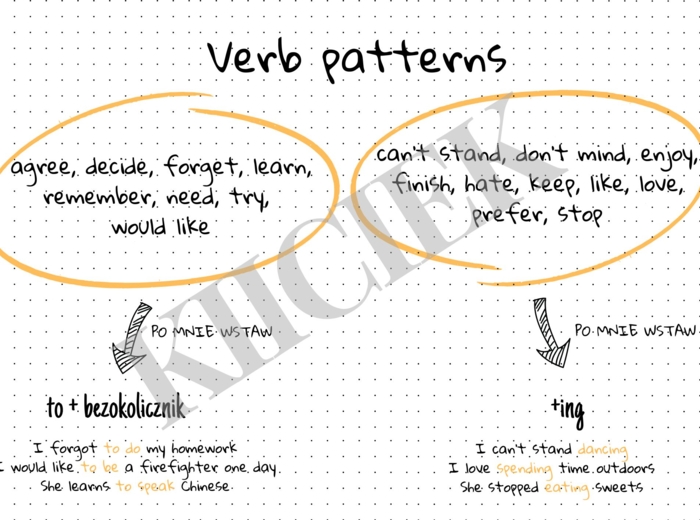 Verb patterns
agree, decide, forget, learn,
remember, need, try,
would like
can't stand, don't mind, enjoy,
finish, hate, keep, like, love,
prefer, stop
KIICIEK
PO MNIE WSTAW
PO MNIE WSTAW
to + bezokolicznik
+ing
I forgot to do my homework
I would like to be a firefighter one day.
She learns to speak Chinese.
I can't stand dancing
I love spending time outdoors
She stopped eating sweets